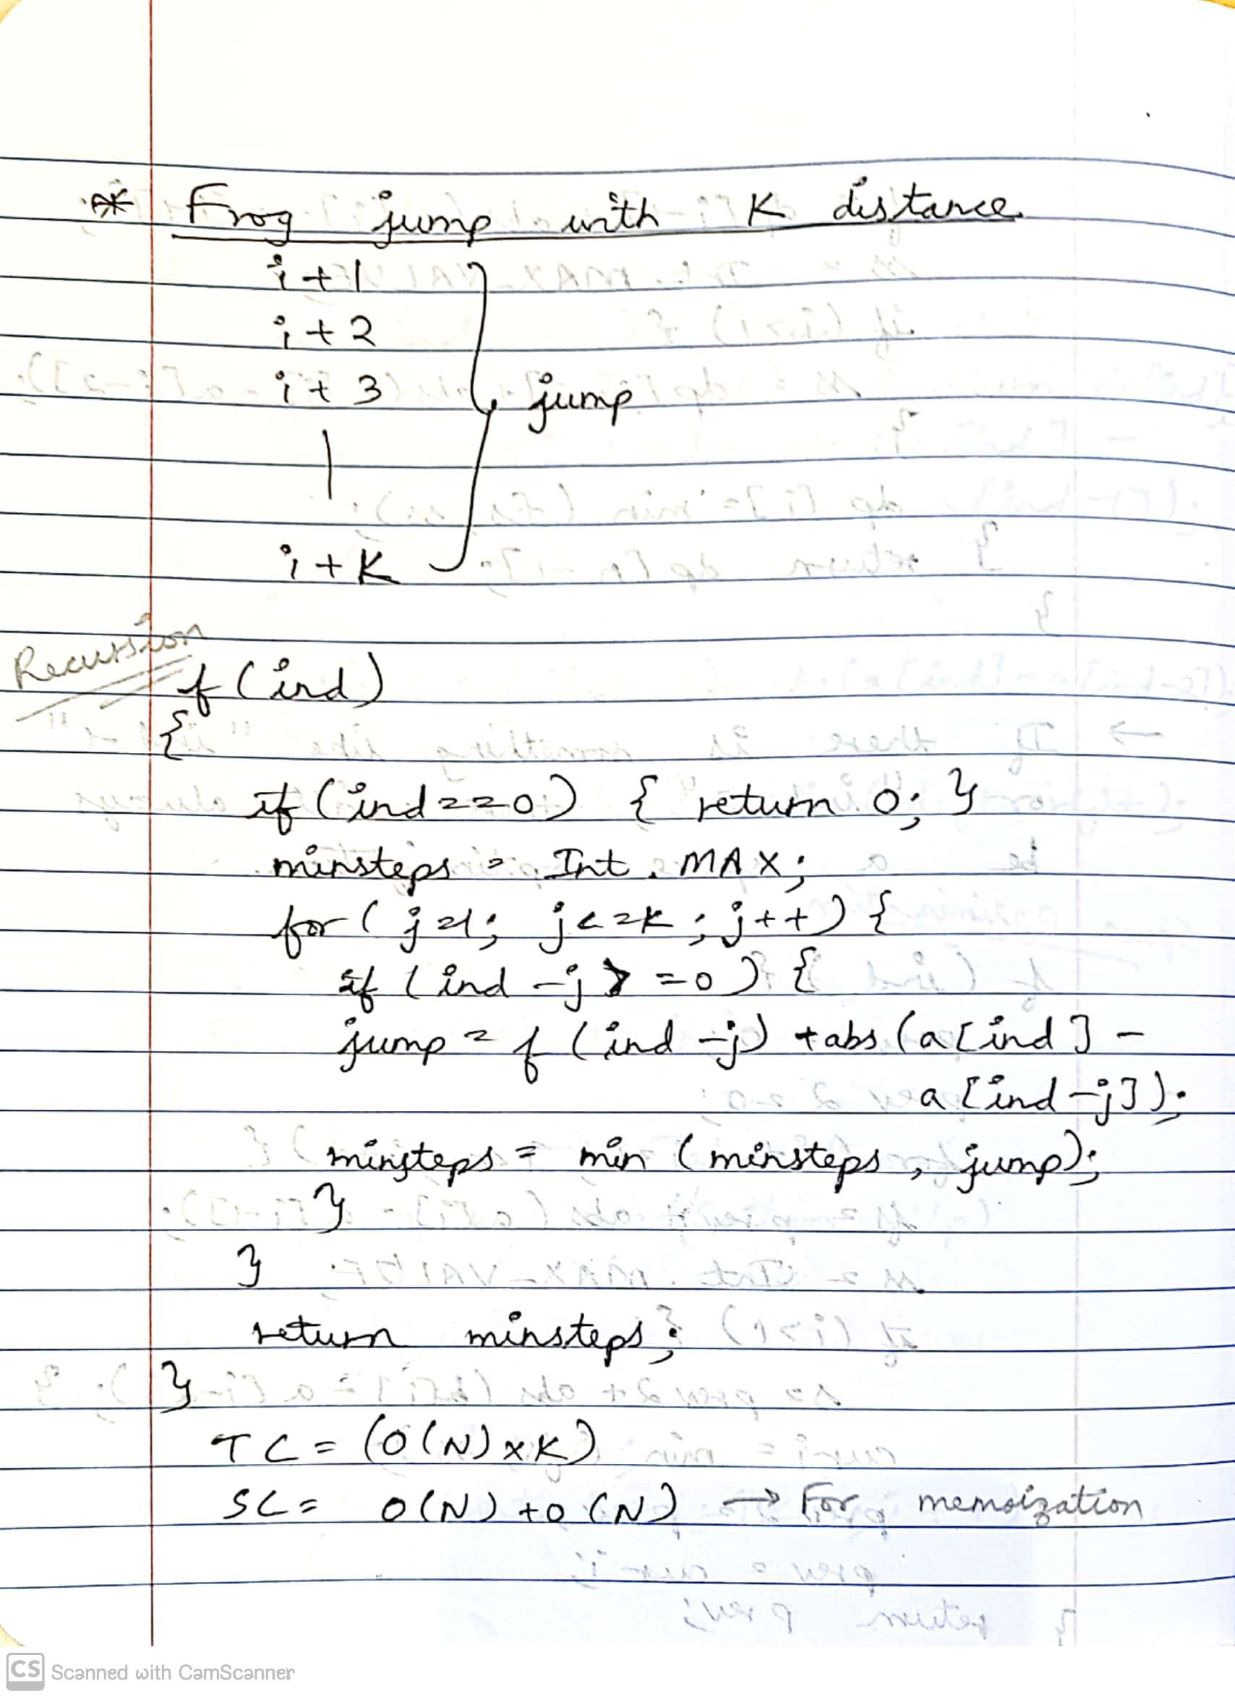 * Frog jump with K distance
i+1
i+2
i+3 jump
|
i+K
Recursion
f(ind)
{
if(ind==0) { return 0; }
minsteps = Int.MAX;
for(j=1; j<=k; j++) {
if (ind-j >=0) {
jump = f(ind-j) + abs(a[ind] -
a[ind-j]);
minsteps = min(minsteps, jump);
}
}
return minsteps;
}
TC = (O(N)xK)
SC = O(N)+O(N) → For memoization
CS Scanned with CamScanner